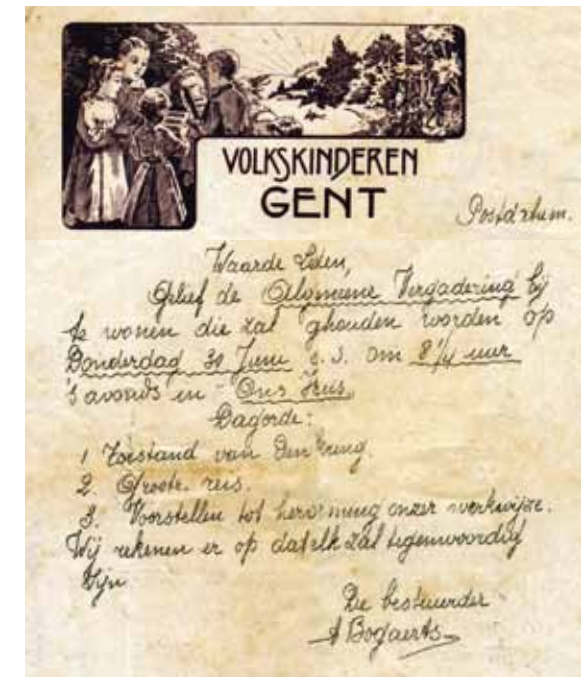 VOLKSKINDEREN
GENT
Postdatum.
Waarde Leden,
Gelief de Algemeene Vergadering bij
te wonen die zal ghouden worden op
Donderdag Juni e. s. om 8 1/4 uur
's avonds in Ons Huis
Dagorde:
1 Toestand van den Kring.
2. Groote reis.
3. Voorstellen tot hervorming onzer werkwijze.
Wij rekenen er op dat elk zal tegenwoordig
zijn
De bestuurder
A Bogaerts